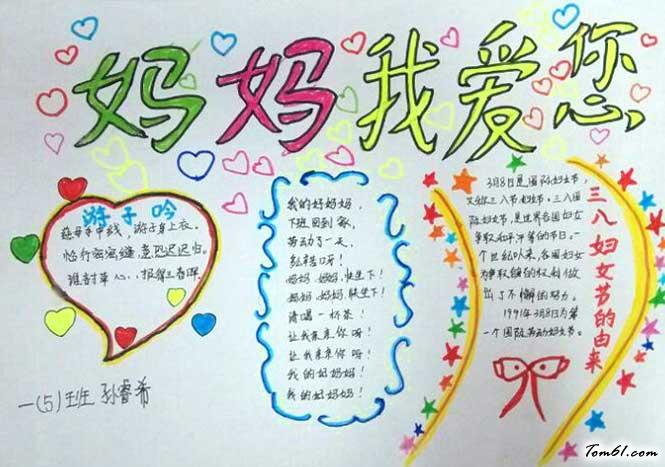 妈妈我爱您
游子吟
慈母手中线,游子身上衣。
临行密密缝,意恐迟迟归。
谁言寸草心,报得三春晖。
一(5)班 孙睿希
我的好妈妈,
下班回到家,
劳动了一天,
妈妈,妈妈,快坐下!
妈妈,妈妈,快坐下!
请喝一杯茶!
让我亲亲你呀!
让我亲亲你呀!
我的好妈妈!
我的好妈妈!
三八妇女节的由来
3月8日是国际妇女节,
又称三八节妇女节,三八国
际妇女节,是世界各国妇女
争取和平 的节日。一
个世纪以来,各国妇女
为争取 的权利做
出了不懈的努力。
1991年3月8日为第
一个国际劳动妇女节。
Tom61.com